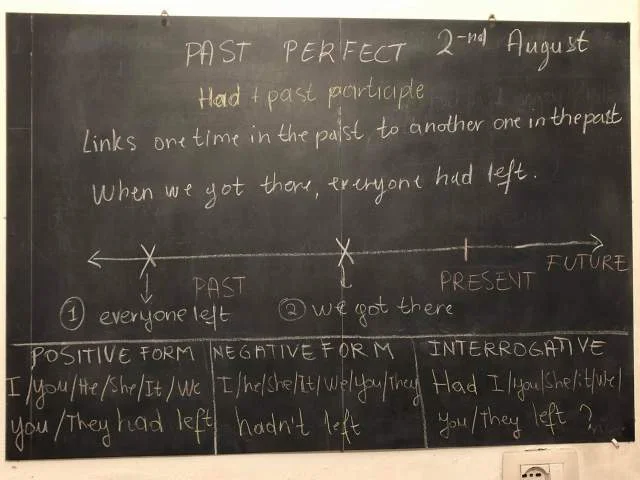 PAST PERFECT 2-nd August
Had + past participle
Links one time in the past to another one in the past
When we got there, everyone had left.
PAST PRESENT FUTURE
① everyone left ② we got there
POSITIVE FORM NEGATIVE FORM INTERROGATIVE
I/you/He/She/It/We
you/They had left
I/he/She/It/We/you/They
hadn't left
Had I/you/She/it/we/
you/They left ?